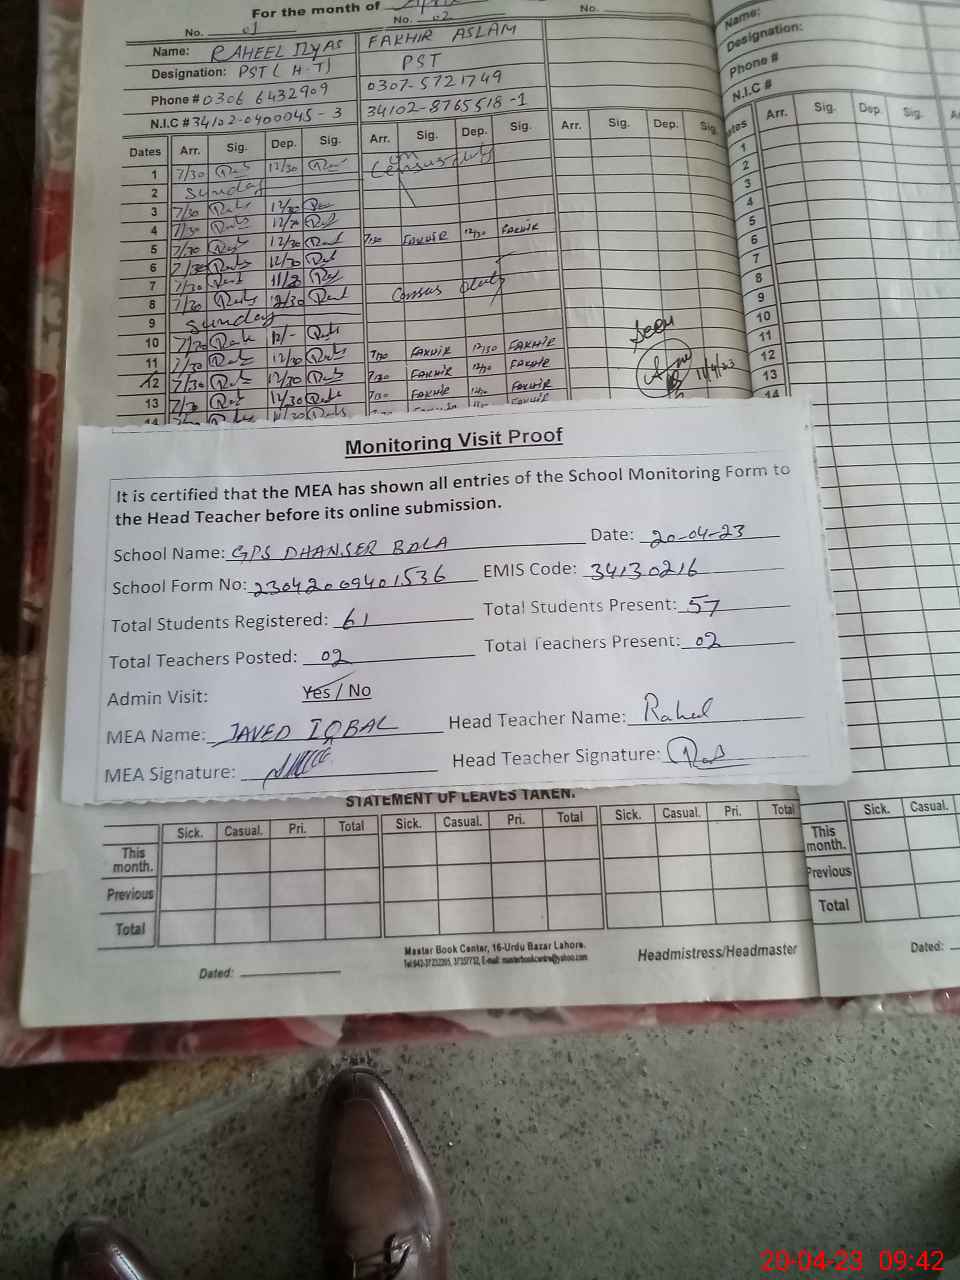 For the month of April
No. 01 No. 02 No.
Name: RAHEEL ILYAS FAKHIR ASLAM
Designation: PST (H.T) PST
Phone # 0306 6432909 0307-5721749
N.I.C # 34102-0400045-3 34102-8765518-1
Dates Arr. Sig. Dep. Sig. Arr. Sig. Dep. Sig. Arr. Sig. Dep. Sig.
1 7/30 12/30 on Census duty
2 Sunday
3 7/30 12/30
4 7/30
5 7/30 12/30 7/30 FAKHIR 12/30 FAKHIR
6 7/30 12/30
7 7/30
8 7/30 12/30 Census duty
9 Sunday
10 7/30 12/- Seen
11 7/30 12/30 7/30 FAKHIR 12/30 FAKHIR
12 7/30 12/30 7/30 FAKHIR 12/30 FAKHIR 11/4/23
13 7/30 12/30 7/30 FAKHIR FAKHIR
14
Monitoring Visit Proof
It is certified that the MEA has shown all entries of the School Monitoring Form to
the Head Teacher before its online submission.
School Name: GPS DHANSER BALA Date: 20-04-23
School Form No: 23042009401536 EMIS Code: 34130216
Total Students Registered: 61 Total Students Present: 57
Total Teachers Posted: 02 Total Teachers Present: 02
Admin Visit: Yes / No
MEA Name: JAVED IQBAL Head Teacher Name: Rahel
MEA Signature: Head Teacher Signature:
STATEMENT OF LEAVES TAKEN.
Sick. Casual. Pri. Total Sick. Casual. Pri. Total Sick. Casual. Pri. Total
This month.
Previous
Total
Master Book Center, 16-Urdu Bazar Lahore.
Dated: Headmistress/Headmaster
Name:
Designation:
Phone #
N.I.C #
Dates Arr. Sig. Dep. Sig.
1
2
3
4
5
6
7
8
9
10
11
12
13
14
Sick. Casual.
This month.
Previous
Total
Dated:
20-04-23 09:42